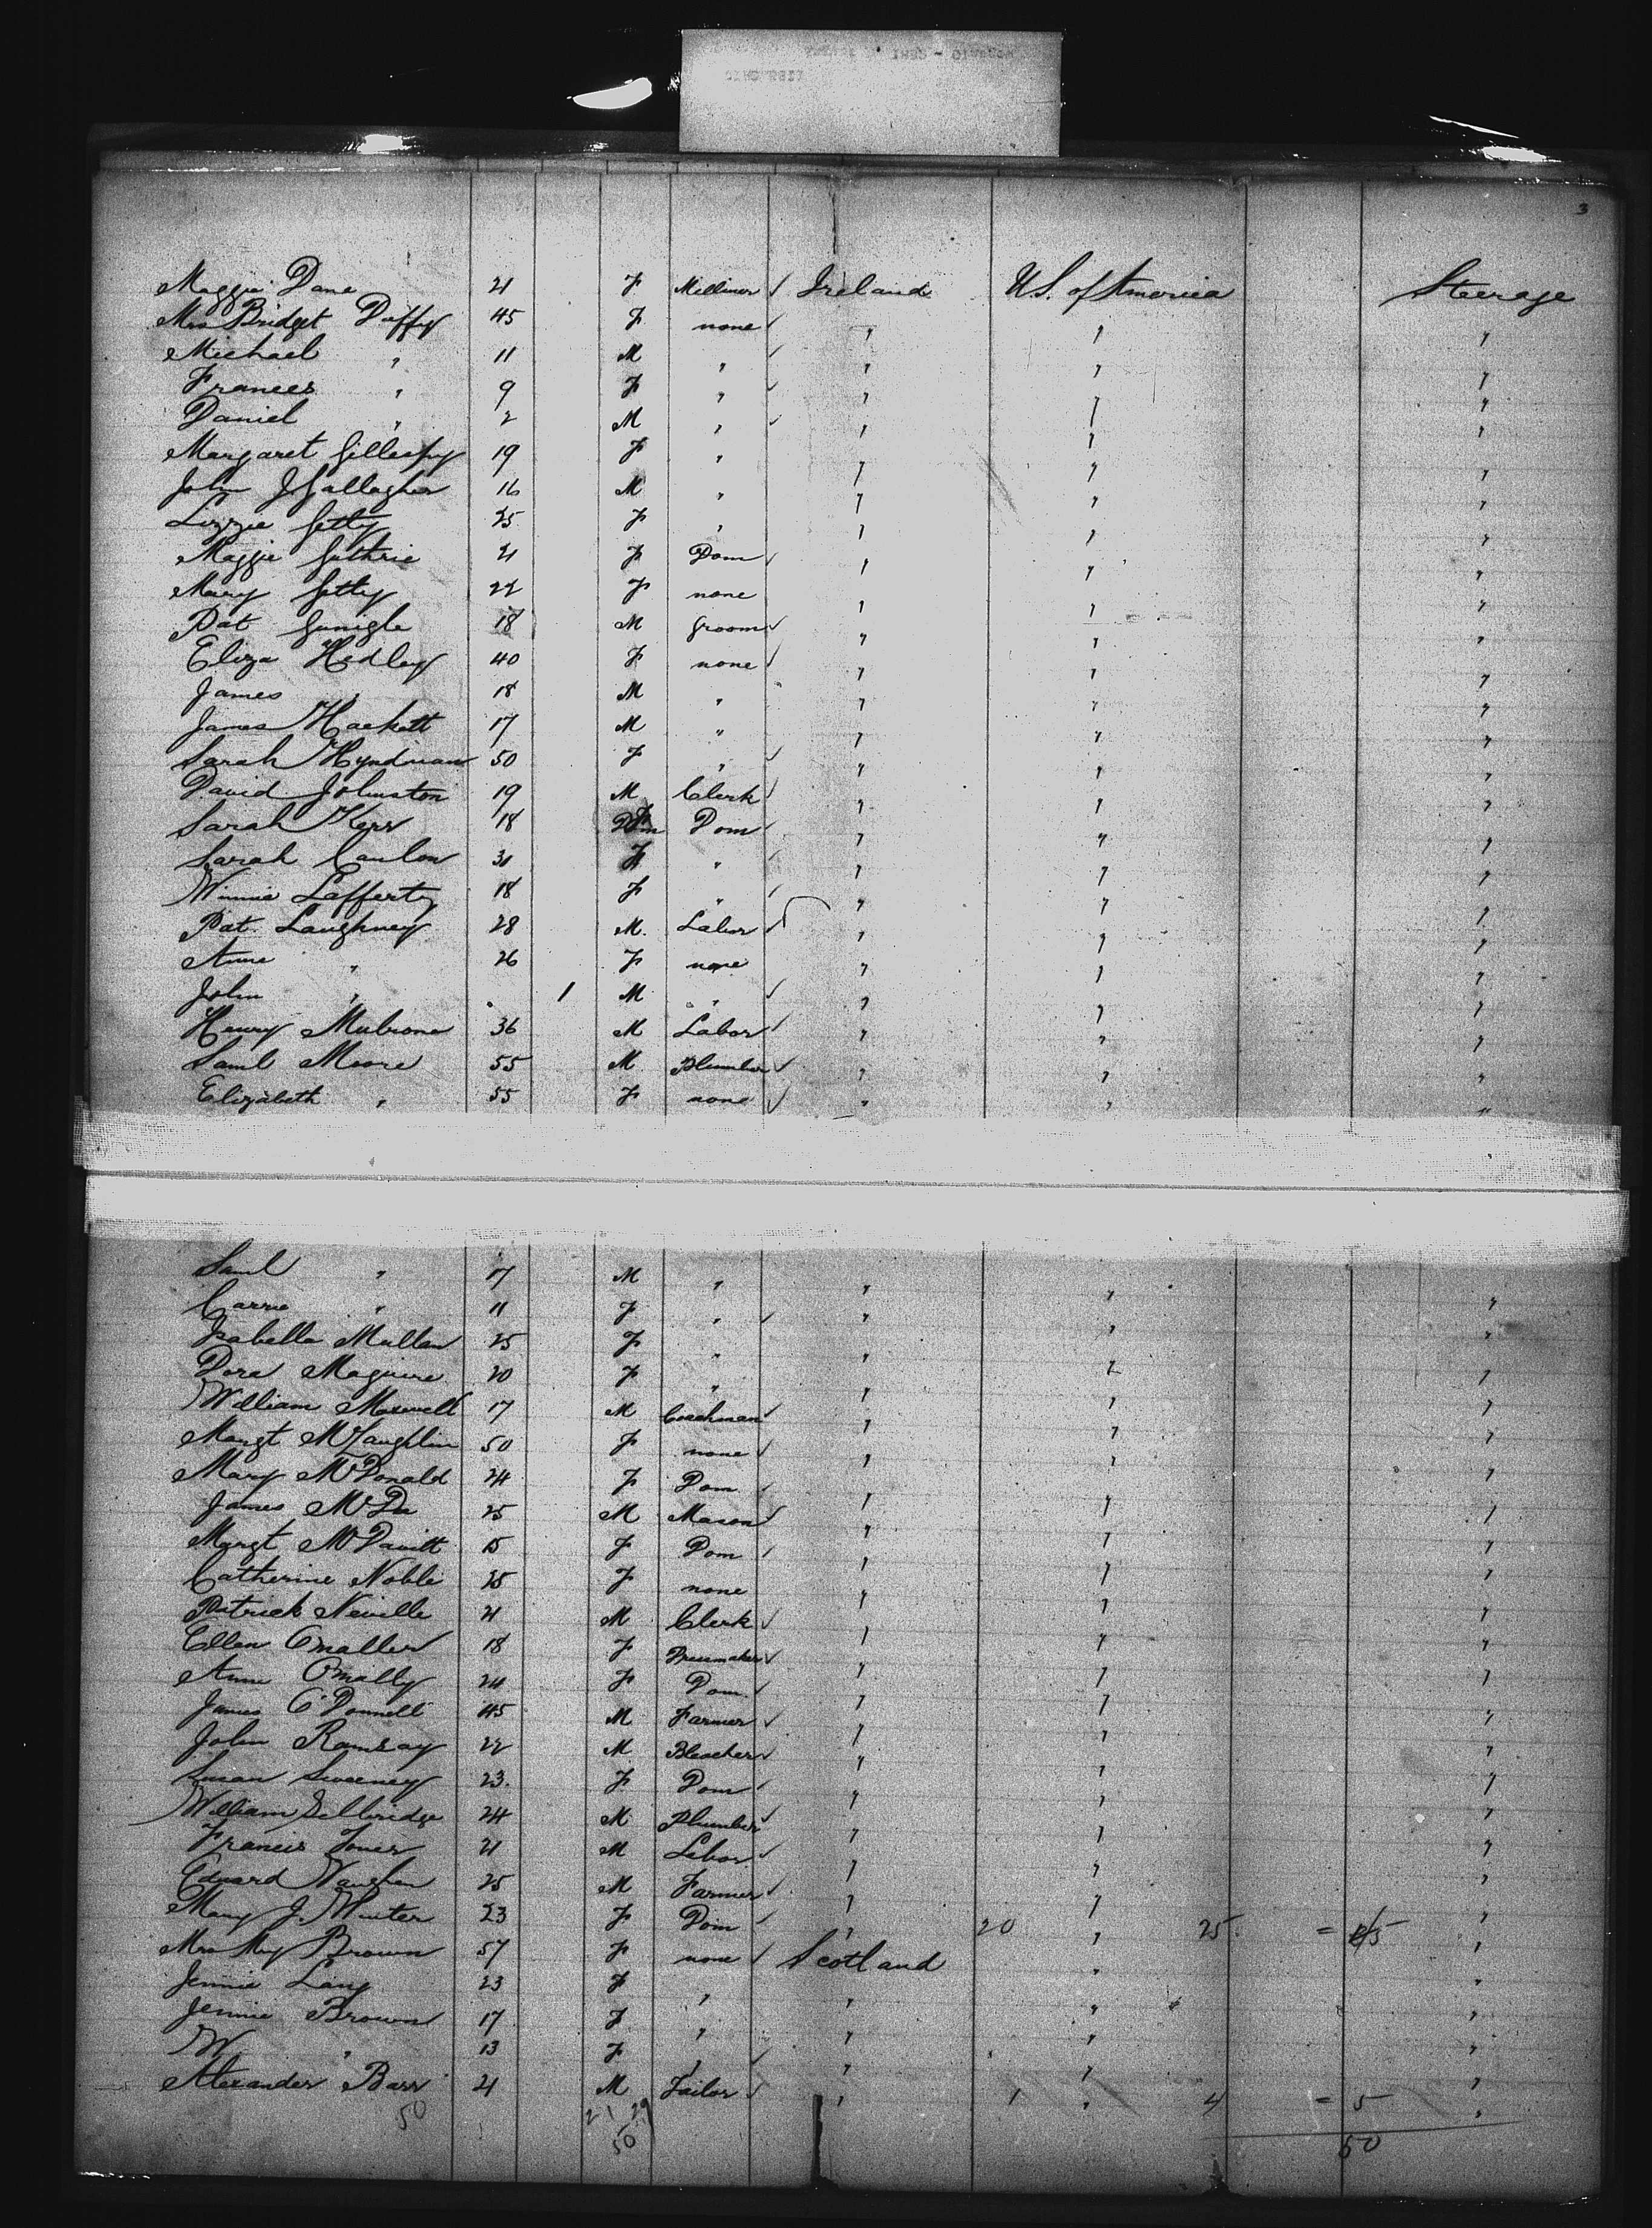 3
Maggie Dane 21 F Milliner ✓ Ireland U.S. of America Steerage
Mrs Bridget Duffy 45 F none ✓ " " "
Michael " 11 M " ✓ " " "
Frances " 9 F " ✓ " " "
Daniel " 2 M " ✓ " " "
Margaret Gillespy 19 F " " " "
John J Gallagher 16 M " " " "
Lizzie Getty 25 F " " " "
Maggie Guthrie 21 F Dom ✓ " " "
Mary Getty 22 F none " " "
Pat Gunigle 18 M Groom ✓ " " "
Eliza Hedley 40 F none ✓ " " "
James " 18 M " " " "
James Hackett 17 M " " " "
Sarah Hyndman 50 F " ✓ " " "
David Johnston 19 M Clerk ✓ " " "
Sarah Kerr 18 F Dom ✓ " " "
Sarah Canlon 31 F " ✓ " " "
Winnie Lafferty 18 F " ✓ " " "
Pat. Laughney 28 M. Labor ✓ " " "
Anne " 26 F none " " "
John " 1 M " ✓ " " "
Henry Mulrone 36 M Labor ✓ " " "
Saml Moore 55 M Plumber ✓ " " "
Elizabeth " 55 F none ✓ " " "
Saml " 17 M " " " "
Carrie " 11 F " ✓ " " "
Isabella Mullan 25 F " " " "
Dora Maguire 20 F " " " "
William Maxwell 17 M Coachman ✓ " " "
Margt McLaughlin 50 F none ✓ " " "
Mary McDonald 24 F Dom ✓ " " "
James McDa 25 M Mason ✓ " " "
Margt McDavitt 15 F Dom ✓ " " "
Catherine Noble 25 F none " " "
Patrick Neville 21 M Clerk ✓ " " "
Ellen Omaller 18 F Dressmaker ✓ " " "
Anne Omally 24 F Dom. ✓ " " "
James O'Donnell 45 M Farmer ✓ " " "
John Ramsay 22 M Bleacher ✓ " " "
Susan Sweeney 23. F Dom ✓ " " "
William Selbridge 24 M Plumber ✓ " " "
Francis Toner 21 M Labor ✓ " " "
Edward Vaughan 25 M Farmer ✓ " " "
Mary J. Winter 23 F Dom ✓ " 20 " 25 = 45 "
Mrs My Brown 57 F none ✓ Scotland " "
Jennie Lang 23 F " " " "
Jennie Brown 17 F " " " "
W " 13 F " ✓ " " "
Alexander Barr 21 M Tailor ✓ " 1 " 4 = 5 "
50 21 29 50
50